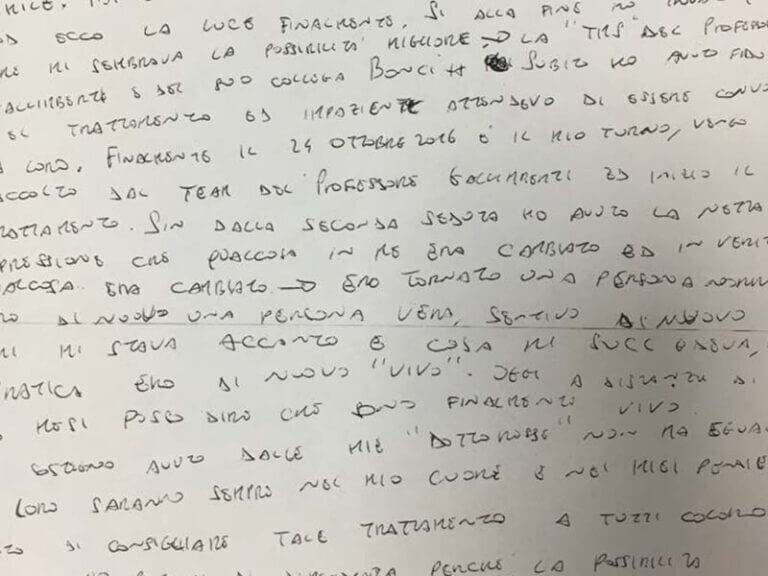 ED ECCO LA LUCE FINALMENTE. SI ALLA FINE HO
RE MI SEMBRAVA LA POSSIBILITA' MIGLIORE → LA "TMS" DEL PROFESSOR
GALLIMBERTI E DEL SUO COLLEGA BONCI SUBITO HO AVUTO FIDU
EL TRATTAMENTO ED IMPAZIENTE ATTENDEVO DI ESSERE CONVO
A LORO. FINALMENTE IL 24 OTTOBRE 2016 E' IL MIO TURNO, VENGO
ACCOLTO DAL TEAM DEL PROFESSORE GALLIMBERTI ED INIZIO IL
RATTAMENTO. SIN DALLA SECONDA SEDUTA HO AVUTO LA NETTA
PRESSIONE CHE QUALCOSA IN ME ERA CAMBIATO ED IN VERIT
ALCOSA ERA CAMBIATO → ERO TORNATO UNA PERSONA NORMA
RO DI NUOVO UNA PERSONA VERA, SENTIVO DI NUOVO
HI MI STAVA ACCANTO E COSA MI SUCCEDEVA,
RATICA ERO DI NUOVO "VIVO". OGGI A DISTANZA DI
MESI POSSO DIRO CHE SONO FINALMENTE VIVO
SOSTEGNO AVUTO DALLE MIE "DOTTORESSE" NON HA EGUA
LORO SARANNO SEMPRE NEL MIO CUORE E NEI MIEI PENSIE
TO DI CONSIGLIARE TALE TRATTAMENTO A TUTTI COLORO
PERCHE LA POSSIBILITA